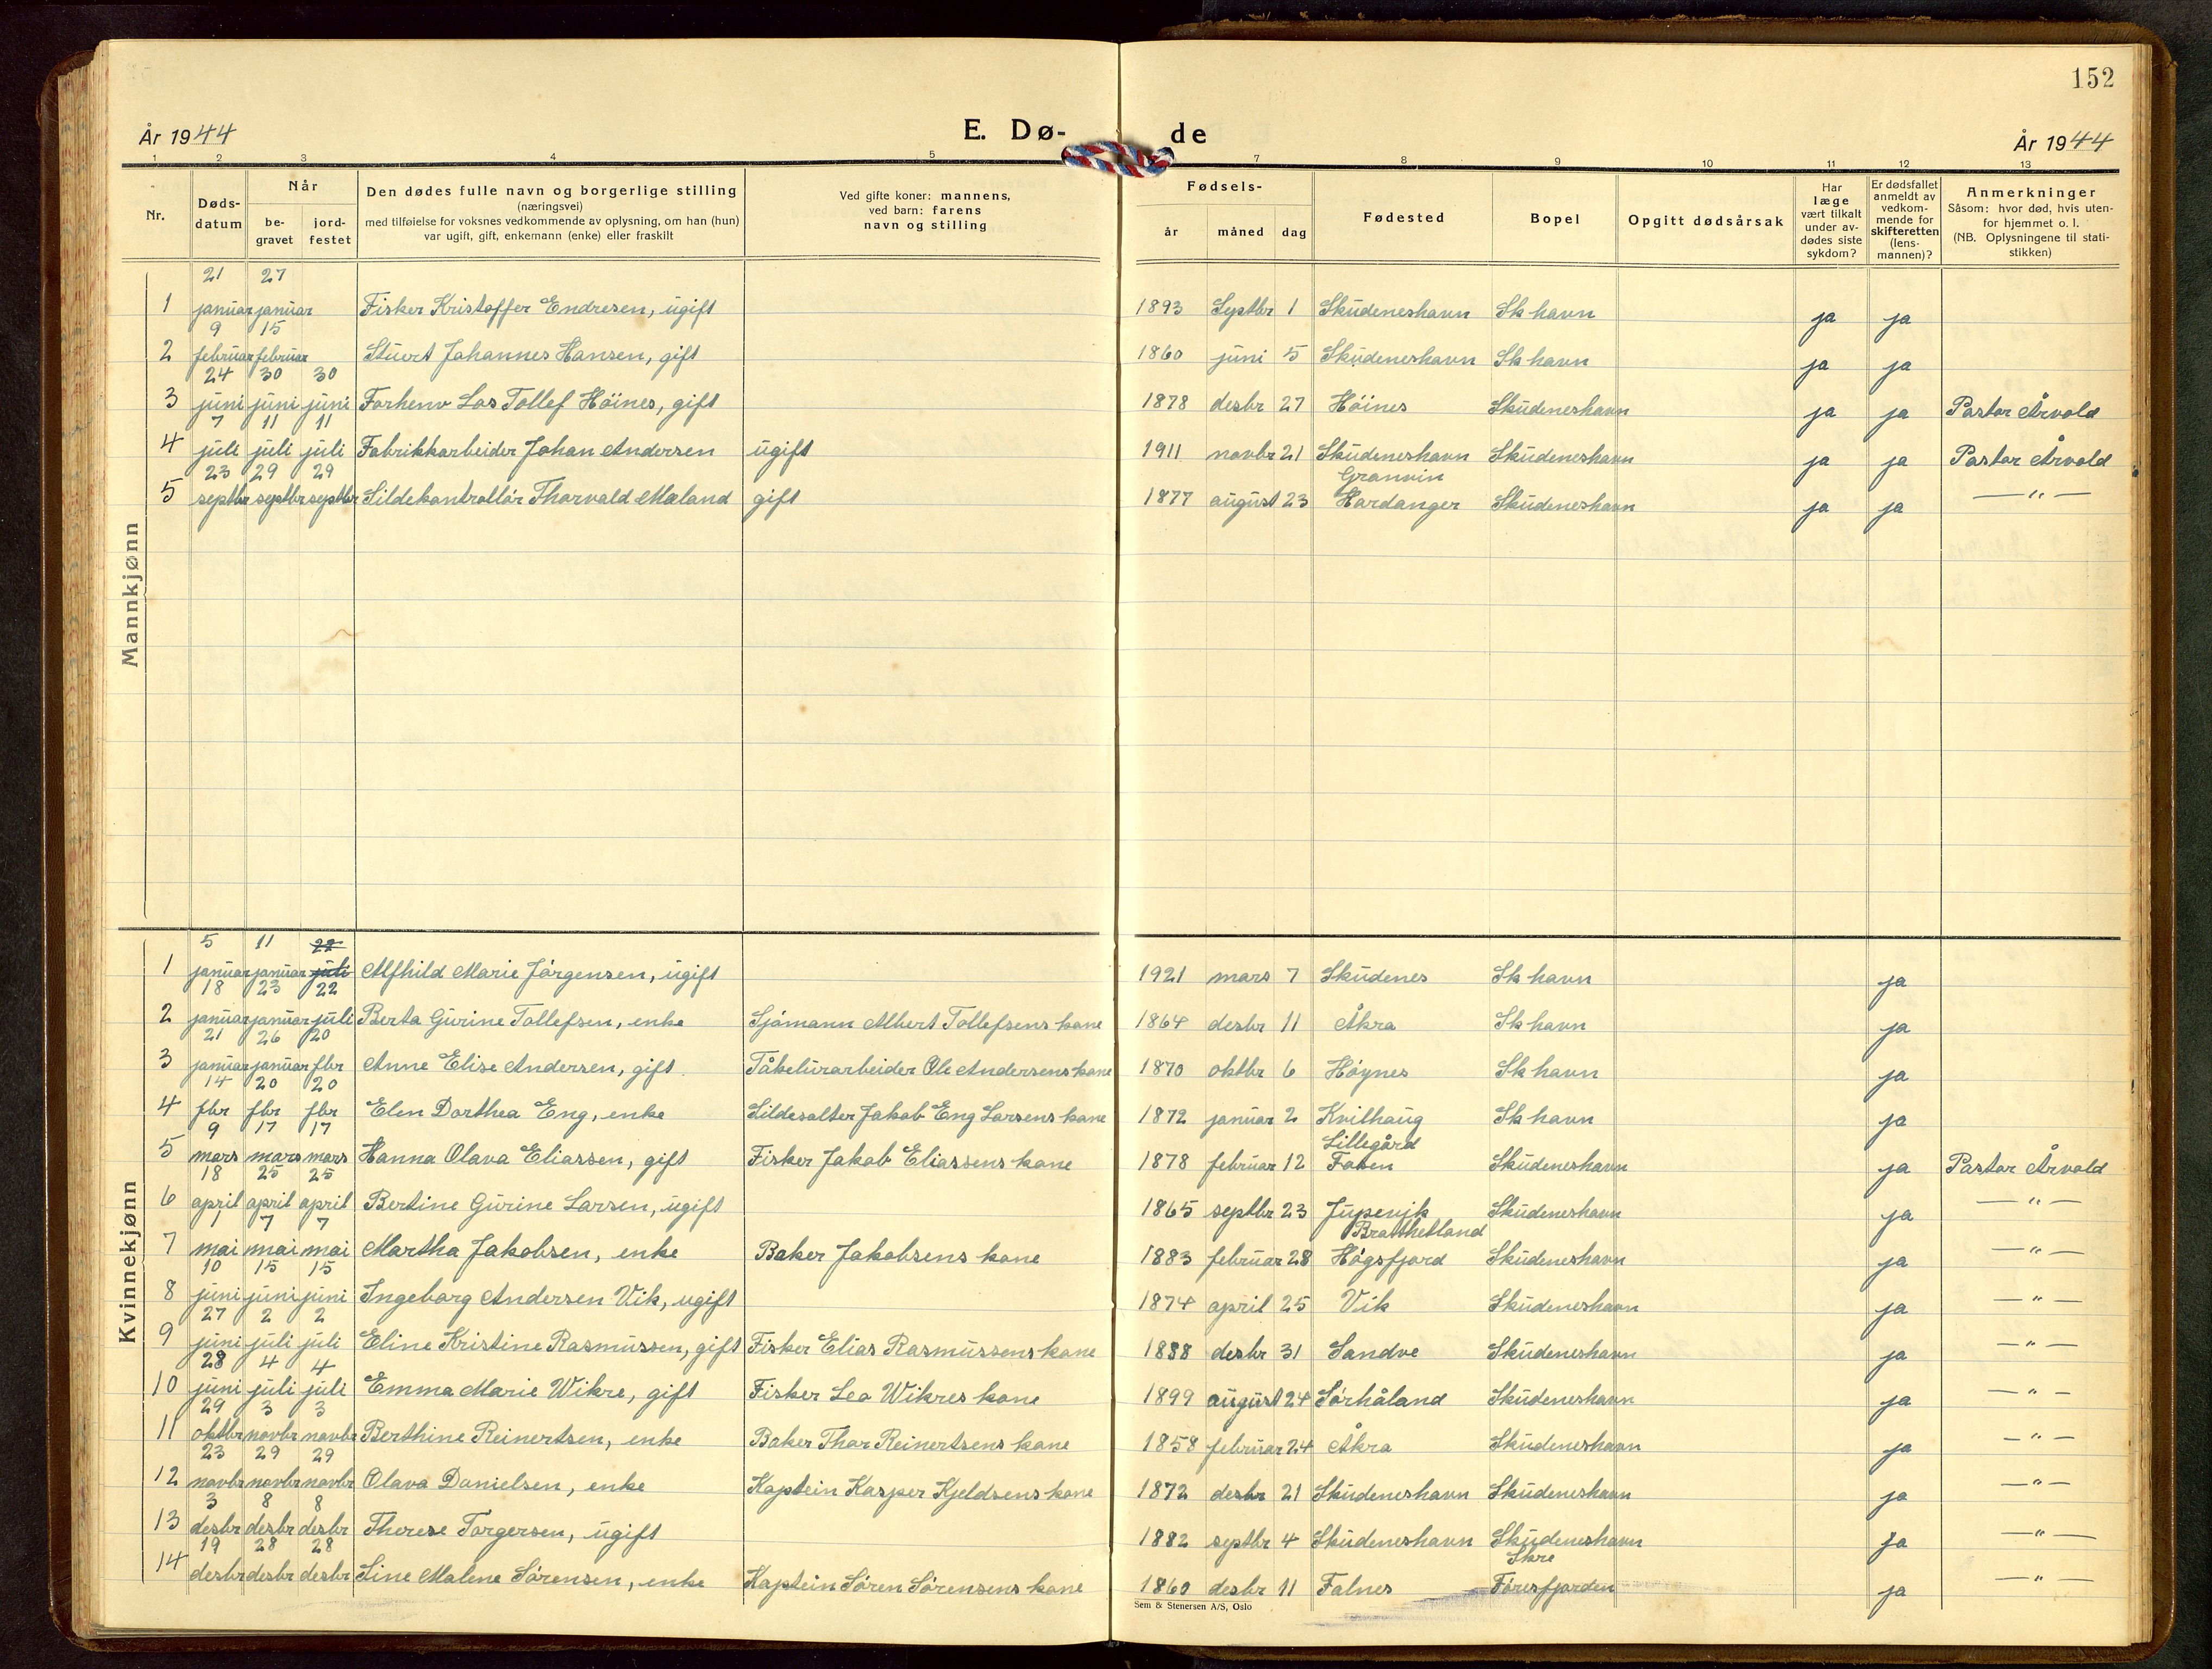 152
År 1944 E. Dø- de År 1944
1 2 3 4 5 7 8 9 10 11 12 13
Nr.
Døds-datum
Når
be-gravet
jord-festet
Den dødes fulle navn og borgerlige stilling
(næringsvei)
med tilføielse for voksnes vedkommende av oplysning, om han (hun)
var ugift, gift, enkemann (enke) eller fraskilt
Ved gifte koner: mannens,
ved barn: farens
navn og stilling
Fødsels-
år måned dag
Fødested
Bopel
Opgitt dødsårsak
Har læge vært tilkalt under av-dødes siste sykdom?
Er dødsfallet anmeldt av vedkom-mende for skifteretten (lens-mannen)?
Anmerkninger
Såsom: hvor død, hvis uten-
for hjemmet o. l.
(NB. Oplysningene til stati-
stikken)
Mannkjønn
21 27
1 januar januar Fisker Kristoffer Endresen, ugift 1893 Septbr 1 Skudeneshavn Sk havn ja ja
9 15
2 februar februar Stuert Johannes Hansen, gift 1860 juni 5 Skudeneshavn Sk havn ja ja
24 30 30
3 juni juni juni Forhenv Los Tollef Höines, gift 1878 desbr 27 Höines Skudeneshavn ja ja Pastor Årvold
7 11 11
4 juli juli juli Fabrikkarbeider Johan Andersen ugift 1911 novbr 21 Skudeneshavn Skudeneshavn ja ja Pastor Årvold
23 29 29 Granvin
5 septbr septbr septbr Sildekontrollör Thorvald Mæland gift 1877 august 23 Hardanger Skudeneshavn ja ja — " —
Kvinnekjønn
5 11 22
1 januar januar juli Alfhild Marie Jörgensen, ugift 1921 mars 7 Skudenes Sk havn ja
18 23 22
2 januar januar juli Berta Gurine Tollefsen, enke Sjömann Albert Tollefsens kone 1864 desbr 11 Åkra Sk havn ja
21 26 20
3 januar januar fbr Anne Elise Andersen, gift Tåkelurarbeider Ole Andersens kone 1870 oktbr 6 Höynes Sk havn ja
14 20 20
4 fbr fbr fbr Elen Dorthea Eng, enke Sildesalter Jakob Eng Larsens kone 1872 januar 2 Kvilhaug Sk havn ja
9 17 17 Lillegård
5 mars mars mars Hanna Olava Eliassen, gift Fisker Jakob Eliassens kone 1878 februar 12 Faøen Skudeneshavn ja Pastor Årvold
18 25 25
6 april april april Bertine Gurine Larsen, ugift 1865 septbr 23 Jupevik Skudeneshavn ja — " —
1 7 7 Bratthetland
7 mai mai mai Martha Jakobsen, enke Baker Jakobsens kone 1883 februar 28 Högsfjord Skudeneshavn ja — " —
10 15 15
8 juni juni juni Ingeborg Andersen Vik, ugift 1874 april 25 Vik Skudeneshavn ja — " —
27 2 2
9 juni juli juli Eline Kristine Rasmussen, gift Fisker Elias Rasmussens kone 1888 desbr 31 Sandve Skudeneshavn ja — " —
28 4 4
10 juni juli juli Emma Marie Wikre, gift Fisker Leo Wikres kone 1899 august 24 Sörhåland Skudeneshavn ja — " —
29 3 3
11 oktbr novbr novbr Berthine Reinertsen, enke Baker Thor Reinertsens kone 1858 februar 24 Åkra Skudeneshavn ja — " —
23 29 29
12 novbr novbr novbr Olava Danielsen, enke Kaptein Kasper Kjeldsens kone 1872 desbr 21 Skudeneshavn Skudeneshavn ja — " —
3 8 8
13 desbr desbr desbr Therese Torgersen, ugift 1882 septbr 4 Skudeneshavn Skudeneshavn ja — " —
19 28 28 Skre
14 desbr desbr desbr Sine Malene Sörensen, enke Kaptein Sören Sörensens kone 1860 desbr 11 Falnes Föresfjorden ja — " —
Sem & Stenersen A/S, Oslo